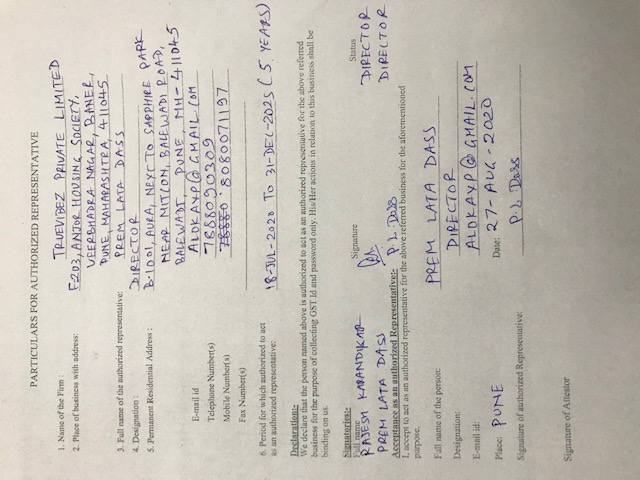 PARTICULARS FOR AUTHORIZED REPRESENTATIVE
1. Name of the Firm : TRUEVIBEZ PRIVATE LIMITED
2. Place of business with address: F-203, ANJOR HOUSING SOCIETY,
VEERBHADRA NAGAR, BANER,
PUNE, MAHARASHTRA, 411045
3. Full name of the authorized representative: PREM LATA DASS
4. Designation : DIRECTOR
5. Permanent Residential Address : B-1001, AURA, NEXT TO SAPPHIRE PARK
NEAR MITCON, BALEWADI ROAD,
BALEWADI, PUNE, MH-411045
E-mail id ALOKAYP@GMAIL.COM
Telephone Number(s) 7888090309
Mobile Number(s) 78880 8080071197
Fax Number(s)
6. Period for which authorized to act
as an authorized representative: 18-JUL-2020 TO 31-DEC-2025 (5 YEARS)
Declaration:-
We declare that the person named above is authorized to act as an authorized representative for the above referred
business for the purpose of collecting GST Id and password only. His/Her actions in relation to this business shall be
binding on us.
Signatories:-
Full name Signature Status
RAJESH KARANDIKAR DIRECTOR
PREM LATA DASS P.L. Dass DIRECTOR
Acceptance as an authorized Representative:-
I, accept to act as an authorized representative for the above referred business for the aforementioned
purpose.
Full name of the person: PREM LATA DASS
Designation: DIRECTOR
E-mail id: ALOKAYP@GMAIL.COM
Place: PUNE Date: 27-AUG-2020
Signature of authorized Representative: P.L. Dass
Signature of Attestor